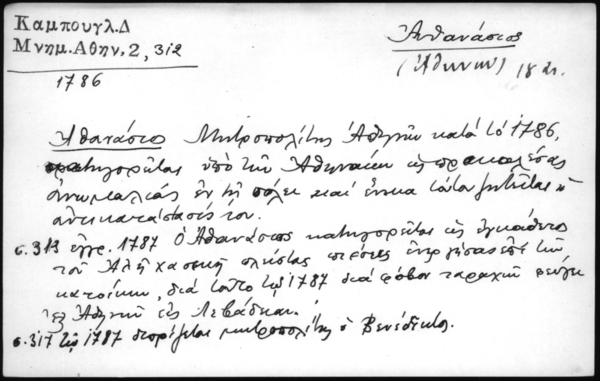 Καμπουγλ.Δ
Μνημ.Αθην.2, 312
1786
Ἀθανάσιος
(Ἀθηνῶν) 18 αι.
Ἀθανάσιος Μητροπολίτης Ἀθηνῶν κατά τό 1786,
κατηγορεῖται ὑπό τῶν Ἀθηναίων ὡς προκαλέσας
ἀνωμαλίας ἐν τῇ πόλει καί ἕνεκα τούτου ζητεῖται ἡ
ἀντικατάστασίς του.
σ. 313 ἔγγρ. 1787 Ὁ Ἀθανάσιος κατηγορεῖται ὡς ἐγκάθετος
τοῦ Ἀλῆ Χασεκῆ πλείστας πιέσεις ἐνεργήσας ἐπί τῶν
κατοίκων, διά τοῦτο τῷ 1787 διά φόβον ταραχῶν φεύγει
ἐξ Ἀθηνῶν εἰς Λεβάδειαν.
σ. 317 τῷ 1787 διορίζεται μητροπολίτης ὁ Βενέδικτος.